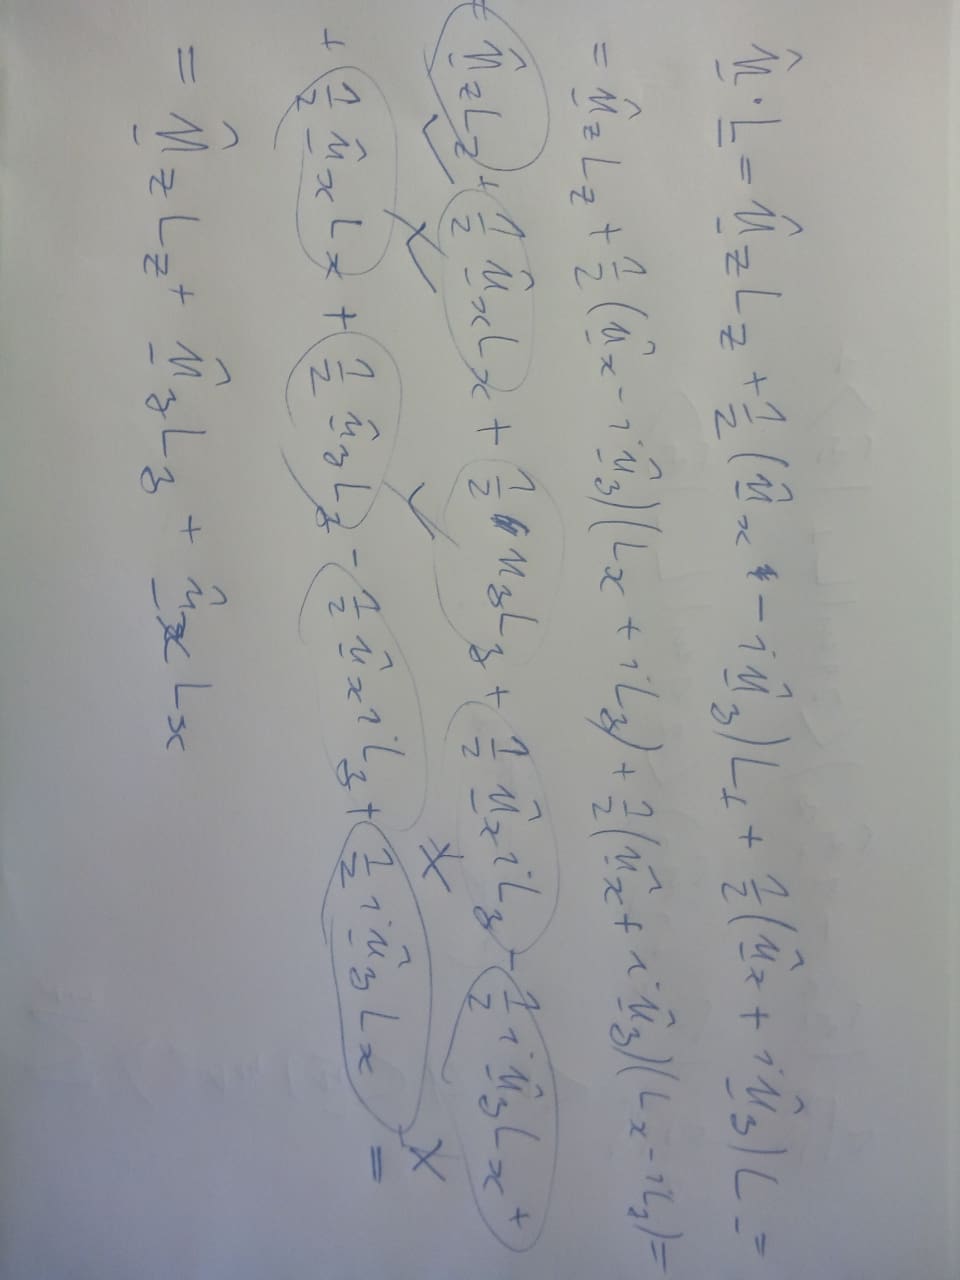 û̲·L̲ = û̲zLz + 1/2 (û̲x - iû̲y)L₊ + 1/2 (û̲x + iû̲y)L₋ =
= û̲zLz + 1/2 (û̲x - iû̲y)(Lx + iLy) + 1/2 (û̲x + iû̲y)(Lx - iLy) =
= û̲zLz + 1/2 û̲xLx + 1/2 uyLy + 1/2 û̲xiLy - 1/2 iû̲yLx +
+ 1/2 û̲xLx + 1/2 û̲yLy - 1/2 û̲xiLy + 1/2 iû̲yLx =
= û̲zLz + û̲yLy + û̲xLx